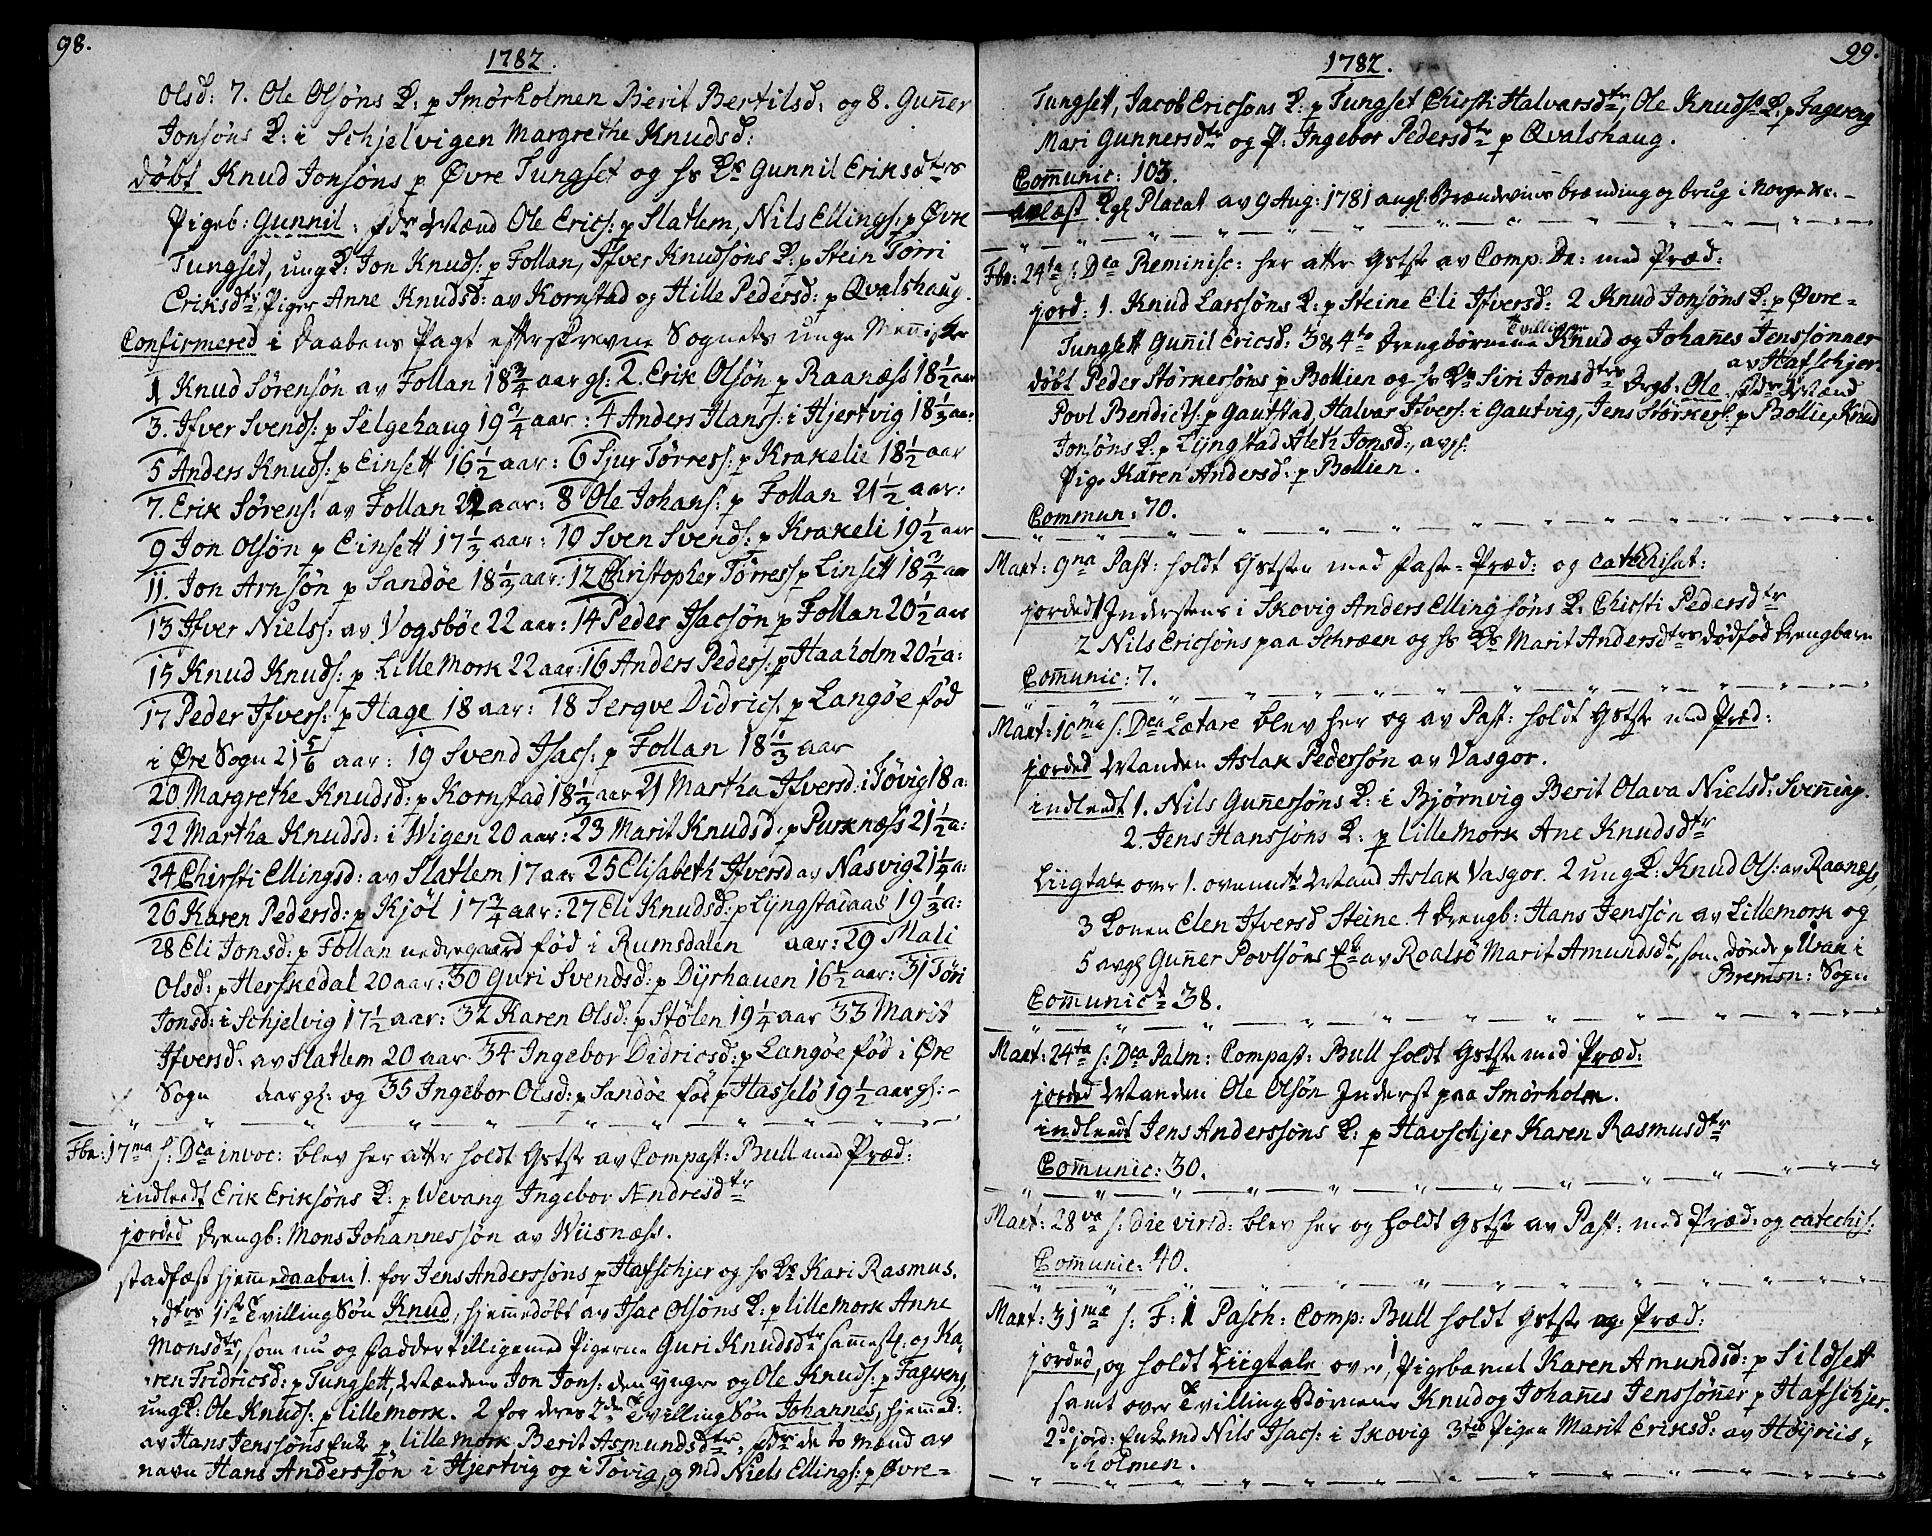 98.
1782.
Olsd: 7. Ole Olsöns K: p Smörholmen Berit Bertilsd: og 8. Guñer
Jonsöns K: i Schjelvigen Margrethe Knudsd:
döbt Knud Jonsöns p Øvre Tungset og hs Ks Gunnil Eriksdtrs
Pigeb: Gunnil: fdr Mænd Ole Erics: p Slatlem, Nils Ellings: p Øvre
Tungset, ungK: Jon Knuds: p Follan, Ifver Knudsöns K: p Stein Törri
Eriksdtr, Piger Anne Knudsd: av Kornstad og Hille Pedersd: p Qvalshaug.
Confirmered i Daabens Pagt efterskrevne Sognets unge Meñisker
1 Knud Sörensön av Follan 18 3/4 aar gl: 2. Erik Olsön p Raanæss 18 1/2 aar
3. Ifver Svends: p Selgehaug 19 1/4 aar: 4 Anders Hans: i Hjertvig 18 1/3 aa:
5 Anders Knuds: p Einsett 16 1/2 aar: 6 Sjur Törress: p Krakelie 18 1/2 aar
7. Erik Sörens: av Follan 22 aar: 8 Ole Johans: p Follan 21 1/2 aar:
9 Jon Olsön p Einsett 17 1/3 aar: 10 Sven Svends: p Krakeli 19 1/2 aar
11. Jon Arnsön p Sandöe 18 1/3 aar: 12 Christopher Törress p Linsett 18 3/4 aar
13 Ifver Niels: av Vogsböe 22 aar: 14 Peder Isacsön p Follan 20 1/2 aar
15 Knud Knuds: p Lillemork 22 aar: 16 Anders Peders: p Haaholm 20 1/2 a:
17 Peder Ifvers: p Hage 18 aar: 18 Sergve Didrics: p Langöe föd
i Øre Sogn 21 5/6 aar: 19 Svend Isacs: p Follan 18 1/3 aar
20 Margrethe Knudsd: p Kornstad 18 1/2 aar 21 Martha Ifversd: i Tövig 18 a:
22 Martha Knudsd: i Wigen 20 aar: 23 Marit Knudsd: p Purknæss 21 1/2 a:
24 Chirsti Ellingsd: av Slatlem 17 aar 25 Elisabeth Ifversd av Nasvig 21 1/4 a:
26 Karen Pedersd: p Kjöl 17 3/4 aar: 27 Eli Knudsd: p Lyngstadaas 19 1/3 a:
28 Eli Jonsd: p Follan nedregaard föd i Rumsdalen aar: 29 Mali
Olsd: p Herskedal 20 aar: 30 Guri Svendsd: p Dyrhauen 16 1/2 aar: 31 Töri
Jonsd: i Schjelvig 17 1/2 aar: 32 Karen Olsd: p Stölen 19 1/4 aar 33 Marit
Ifversd: av Slatlem 20 aar 34 Ingebor Didricsd: p Langöe föd i Øre
Sogn aar gl: og 35 Ingebor Olsd: p Sandöe föd p Hasselö 19 1/2 aar gl: -
Fbr: 17ma s: Dca invoc: blev her attr holdt Gstste av Compast: Bull med Præd:
indleedt Erik Eriksöns K: p Wevang Ingebor Andresdtr
jorded Drengb: Mons Johannessön av Wiisnæss.
stadfæst hjemmedaaben 1. for Jens Anderssöns p Hafschjer og hs Ks Kari Rasmus-
dtrs 1ste Tvilling Sön Knud, hjemmedöbt av Isac Olsöns K: p Lillemork Anne
Monsdtr, som nu og Fadder tilligemed Pigerne Guri Knudsdtr sammest: og Ka-
ren Fridricsd: p Tungsett, Mændene Jon Jons: den yngre og Ole Knuds: p Fagereng
ungK: Ole Knuds: p Lillemork. 2 for deres 2den Tvilling Sön Johannes, hjemmed:
av Hans Jenssöns Enke p Lillemork Berit Asmundsdtr, fdr de to mænd av
navn Hans Anderssön i Hjertvig og i Tövig, og Md Niels Ellings: p Øvre-
99.
1782.
Tungsett, Jacob Ericsons K: p Tungset Chirsti Halvarsdtr, Ole Knuds: K: p Fagereng
Mari Gunnersdtr og P: Ingebor Pedersdtr p Qvalshaug.
Communic: 103.
avlæst Kgl Placat av 9 Aug: 1781 angl: Brændeviins brænding og brug i Norge &c. -
Fbr: 24ta s: Dca Reminisc: her attr Gstste av Comp: Dr: med Præd:
jord: 1. Knud Larssöns K: p Steine Eli Ifversd: 2 Knud Jonsöns K: p Øvre-
Tungsett Guñil Ericsd: 3 & 4to Drengbörnene Tvillinger Knud og Johañes Jenssönner
av Hafschjer
döbt Peder Störkersöns p Bollien og hs Ks Siri Jonsdtrs Drgb: Ole, fdr Mænd
Povl Bendicts: p Gautstad, Halvar Ifvers: i Gautvig, Jens Störkers: p Bollie, Knud
Jonsöns K: p Lyngstad Aleth Jonsd:, avgl:
Pige Karen Andersd: p Bollien.
Commun: 70.
Mart: 9na Past: holdt Gststen med Faste-Præd: og catechisat:
jorded 1 Inderstens i Skovig Anders Ellingsöns K: Chirsti Pedersdtr
2 Nils Ericsöns paa Schræen og hs Ks Marit Andersdtrs dödföd Drengbarn
Communic: 7.
Mart: 10ma s: Dca Lætare blev her og av Past: holdt Gstste med Præd:
jorded Manden Aslak Pedersön av Vasgor.
indleedt 1. Nils Guñersöns K: i Björnvig Berit Olava Nielsd: Sveñing.
2. Jens Hanssöns K: p Lillemork Ane Knudsdtr
Liigtale over 1. ovennte Mand Aslak Vasgor. 2 ungK: Knud Ols: av Raanæss
3 Konen Elen Ifversd Steine. 4 Drengb: Hans Jenssön av Lillemork og
5 avgl Guñer Povlsöns Ke av Roalsö Marit Amundsdtr, som döde p Uran i
Bremsn: Sogn
Communicte 38.
Mart: 24ta s: Dca Palm: Compast: Bull holdt Gstste med Præd:
jorded Manden Ole Olsön Inderst paa Smörholm.
indleedt Jens Anderssöns K: p Havschjer Karen Rasmusdtr
Communic: 30.
Mart: 28va s: die virid: blev her og holdt Gstste av Past: med Præd: og catechis:
Communic: 40.
Mart: 31ma s: F: 1 Pasch: Comp: Bull holdt Gstste og Præd:
jorded, og holdt Liigtale over 1 Pigebarnet Karen Amundsd: p Sildsett
samt over Tvilling Börnene Knud og Johañes Jenssöñer p Hafschjer.
2do jord: Enkemd Nils Isacs: i Skovig 3tio Pigen Marit Eriksd: av Höyriis-
holmen.